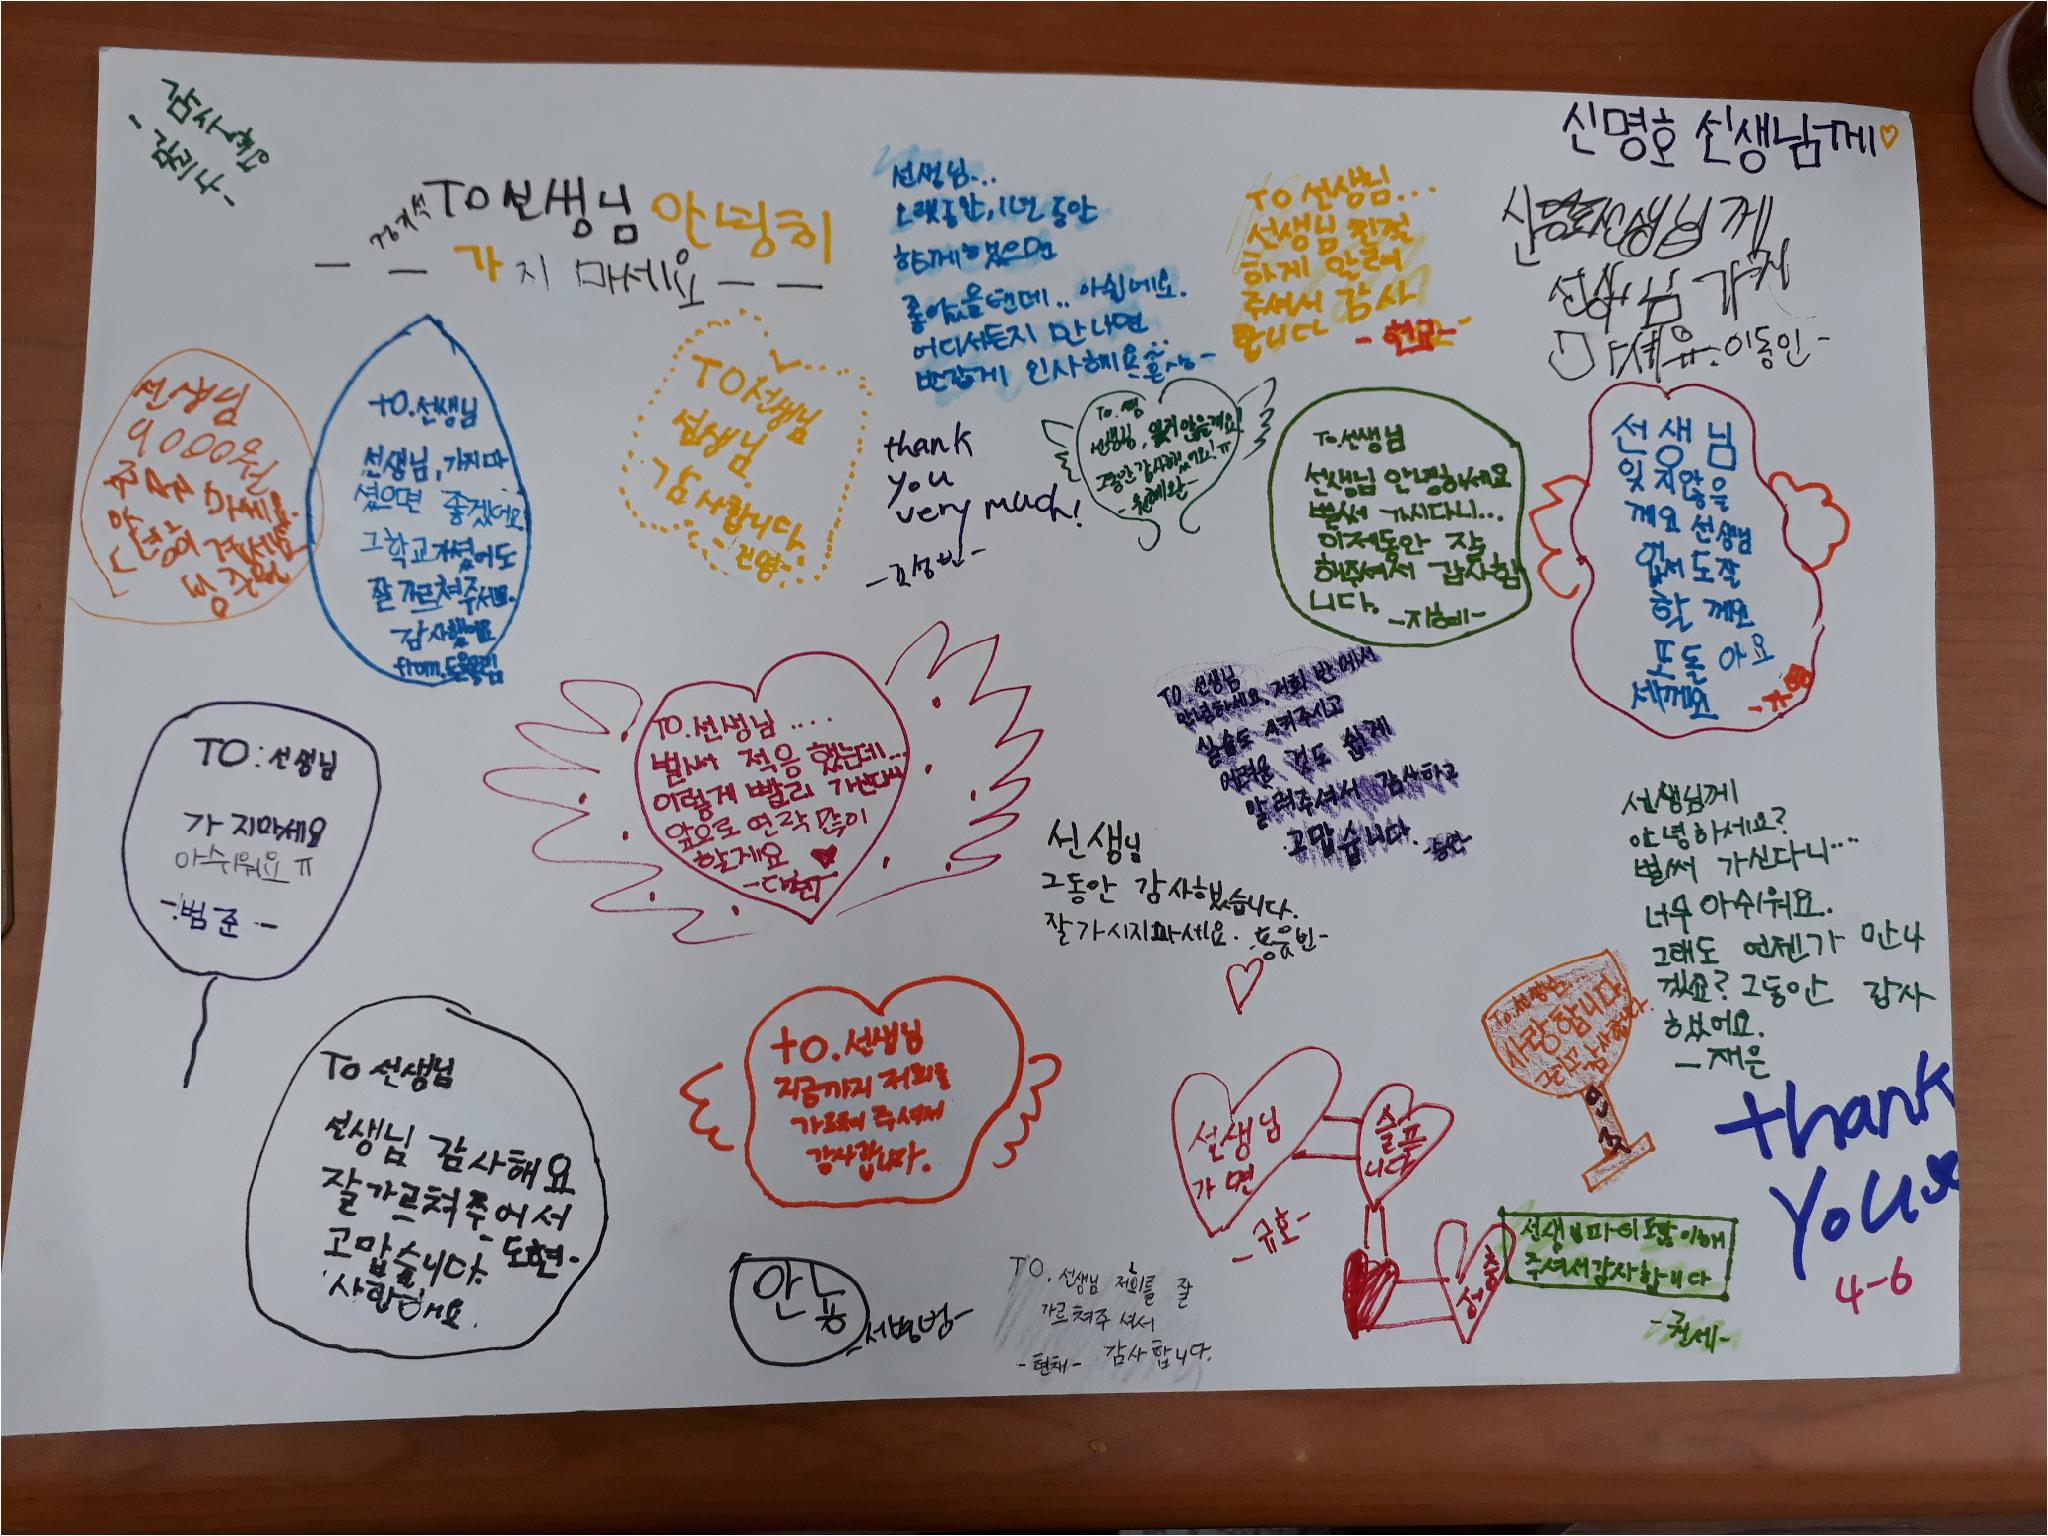 신명호 선생님께
감사해여
TO 선생님 안녕히
가지 마세요
선생님...
1년 동안
함께했으면
좋았을텐데.. 아쉽네요.
어디서든지 만나면
반갑게 인사해요
TO 선생님...
선생님 친절
하게 알려
주셔서 감사
합니다
-현묘-
신명호선생님께
선생님 가지
마세유 이동인-
선생님
90000원
주시지 마세요
안녕히
TO.선생님
선생님, 가지마
셨으면 좋겠어요
그학교가셨어도
잘 가르쳐주세요.
감사했어요
from.
TO선생님
선생님.
감사합니다.
thank
you
very much!
To.쌤
선생님, 잊지 않을게요!
그동안 감사했어요!ㅠ
To.선생님
선생님 안녕하세요
벌써 가시다니...
이제동안 잘
해주셔서 감사합
니다.
-지혜-
선생님
잊지않을
께요 선생님
없서도 잘
할 께요
또 돌 아요
세께요
TO:선생님
가지마세요
아쉬워요 ㅠ
-범준-
TO.선생님 ....
벌써 적응 했는데...
이렇게 빨리 가신다니
앞으로 연락 많이
할게요
TO.선생님
안녕하세요. 저희 반에서
실습도 시켜주시고
어려울 것도 쉽게
알려주셔서 감사하고
고맙습니다.
선생님
그동안 감사했습니다.
잘가시지마세요.
선생님께
안녕하세요?
벌써 가신다니....
너무 아쉬워요.
그래도 언젠가 만나
겠죠? 그동안 감사
했어요.
-재은
To 선생님
선생님 감사해요
잘가르쳐주어서
고맙습니다. 도현-
사랑해요.
to.선생님
지금까지 저희를
가르쳐 주셔서
감사합니다.
To.선생님
사랑합니다.
그리고 감사합니다.
선생님
가면
슬프
니다
-규호-
thank
you
4-6
선생님
주셔서감사합니다
안뇽
TO. 선생님 저희를 잘
가르쳐주 셔서
감사합니다.
-현채-